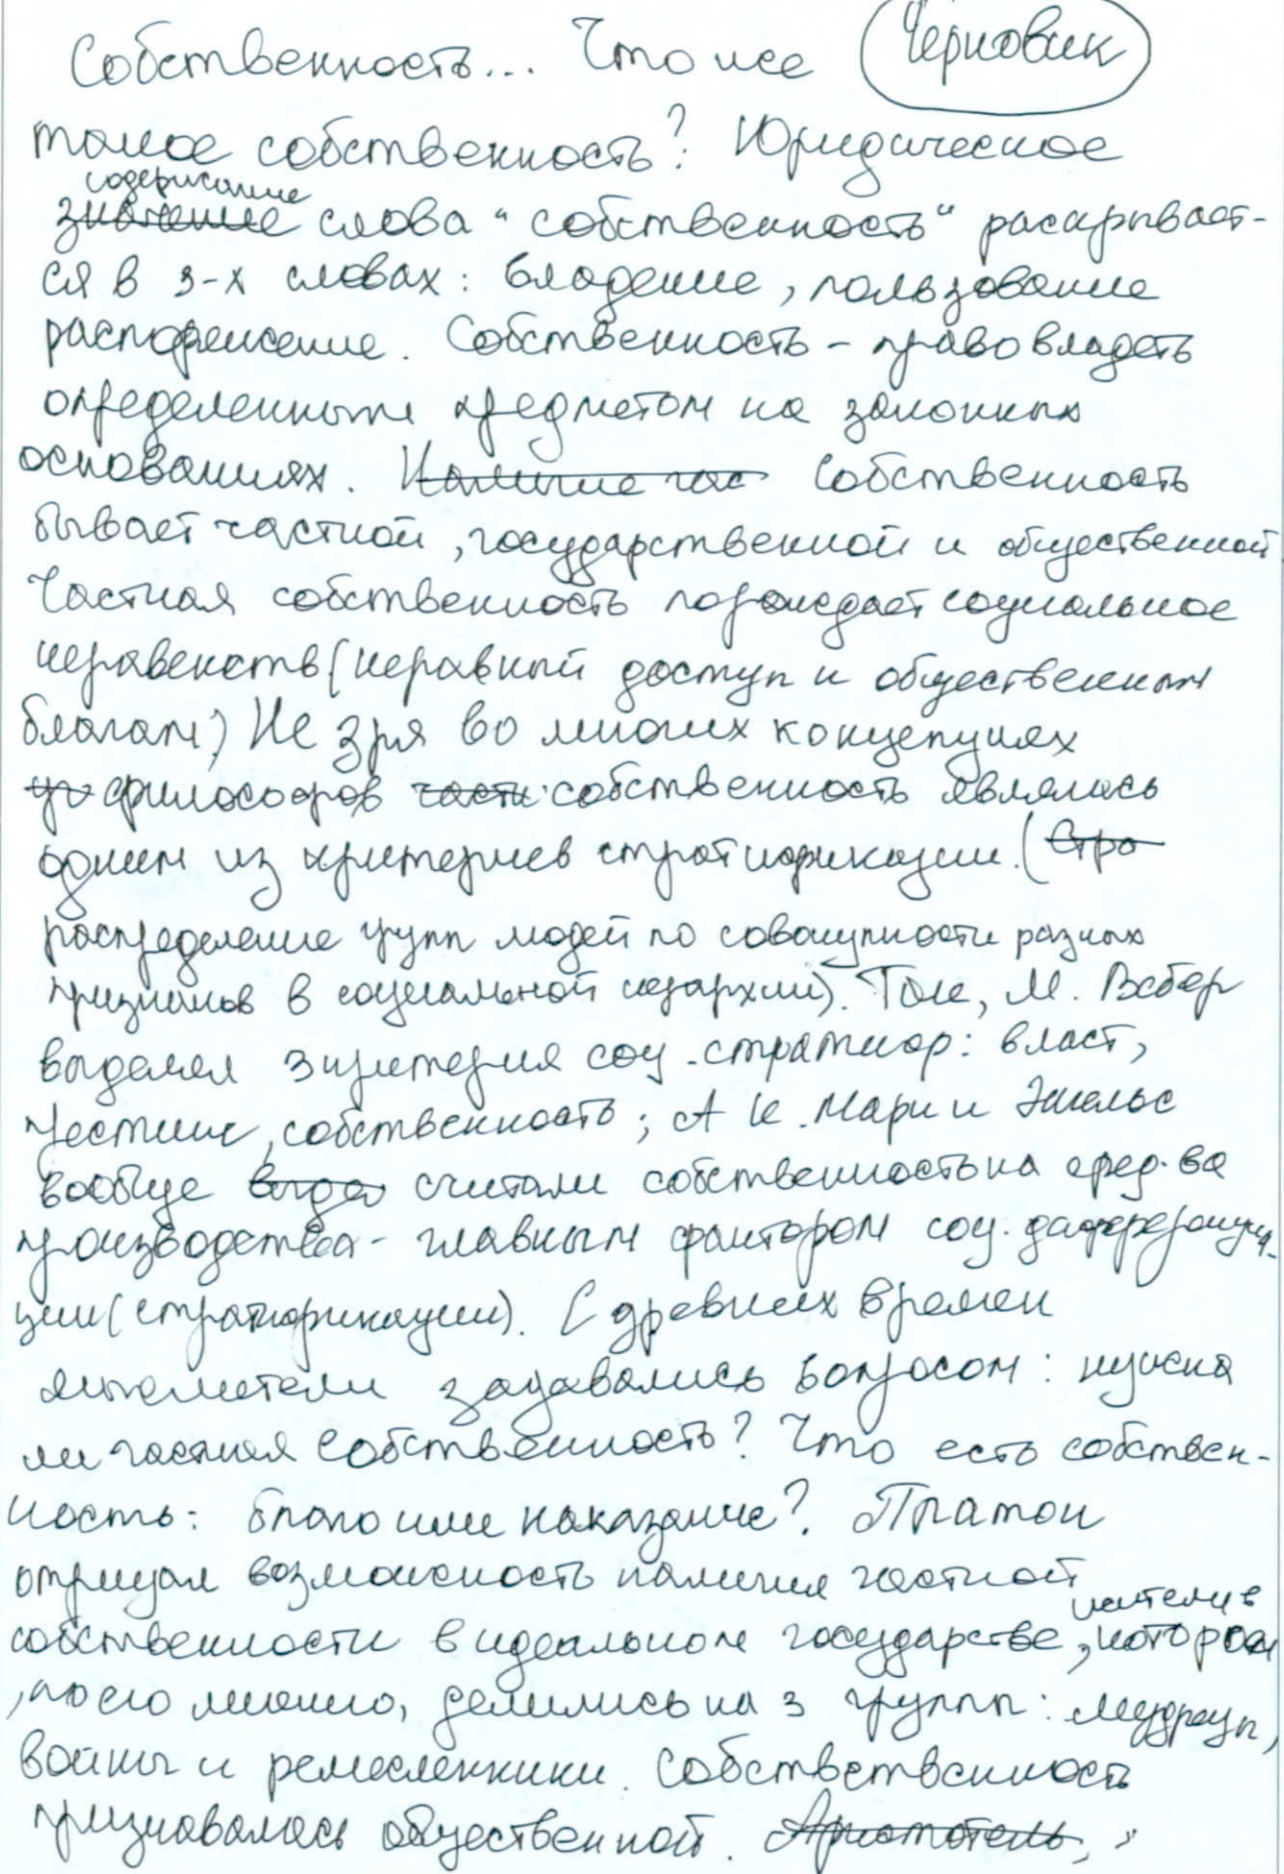 Собственность... Что же Черновик
такое собственность? Юридическое
содержание
значение слова "собственность" раскрывает-
ся в 3-х словах: владение, пользование
распоряжение. Собственность - право владеть
определенным предметом на законных
основаниях. Наличие час Собственность
бывает частной, государственной и общественной
Частная собственность порождает социальное
неравенств (неравный доступ к общественным
благам) Не зря во многих концепциях
философов части собственность являлась
одним из критериев стратификации. (Стра
распределение групп людей по совокупности разных
признаков в социальной иерархии). Так, М. Вебер
выделял 3 критерия соц. стратиф: власт,
престиж, собственность; А К. Маркс и Энгельс
вообще выдел считали собственность на сред-ва
производства - главным фактором соц. дифференциа-
ции (стратификации). С древних времен
мыслители задавались вопросом: нужна
ли частная собственность? Что есть собствен-
ность: благо или наказание? Платон
отрицал возможность наличия частной
собственности в идеальном государстве, жители в котором
, по его мнению, делились на 3 групп: мудрецы,
войны и ремесленники. Собствественность
признавалась общественной. Аристотель,